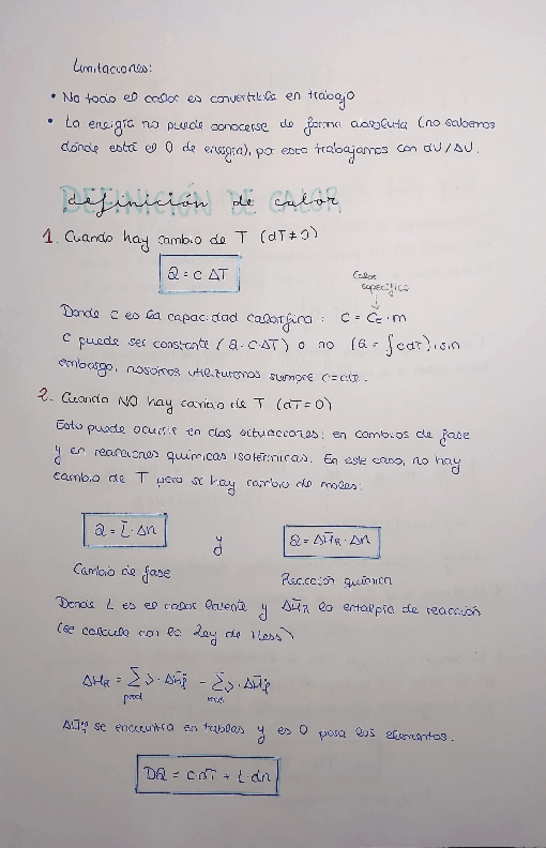 Limitaciones:
• No todo el calor es convertible en trabajo
• La energía no puede conocerse de forma absoluta (no sabemos
dónde está el 0 de energía), por esto trabajamos con dU/ΔU.
DEFINICIÓN DE CALOR
definición de calor
1. Cuando hay cambio de T (dT≠0)
Q = C ΔT
Calor
específico
↓
Donde C es la capacidad calorífica: C = Ce · m
C puede ser constante (Q = C·ΔT) o no (Q = ∫cdT), sin
embargo, nosotros utilizaremos siempre C=cte.
2. Cuando NO hay cambio de T (dT=0)
Esto puede ocurrir en dos situaciones: en cambios de fase
y en reacciones químicas isotérmicas. En este caso, no hay
cambio de T pero sí hay cambio de moles:
Q = L̄ · Δn y Q = ΔH̄R · Δn
Cambio de fase Reacción química
Donde L es el calor latente y ΔH̄R la entalpía de reacción
(se calcula con la Ley de Hess)
ΔHR = Σ ν · ΔH̄f° − Σ ν · ΔH̄f°
prod reac
ΔH̄f° se encuentra en tablas y es 0 para los elementos.
DQ = C dT + L · dn